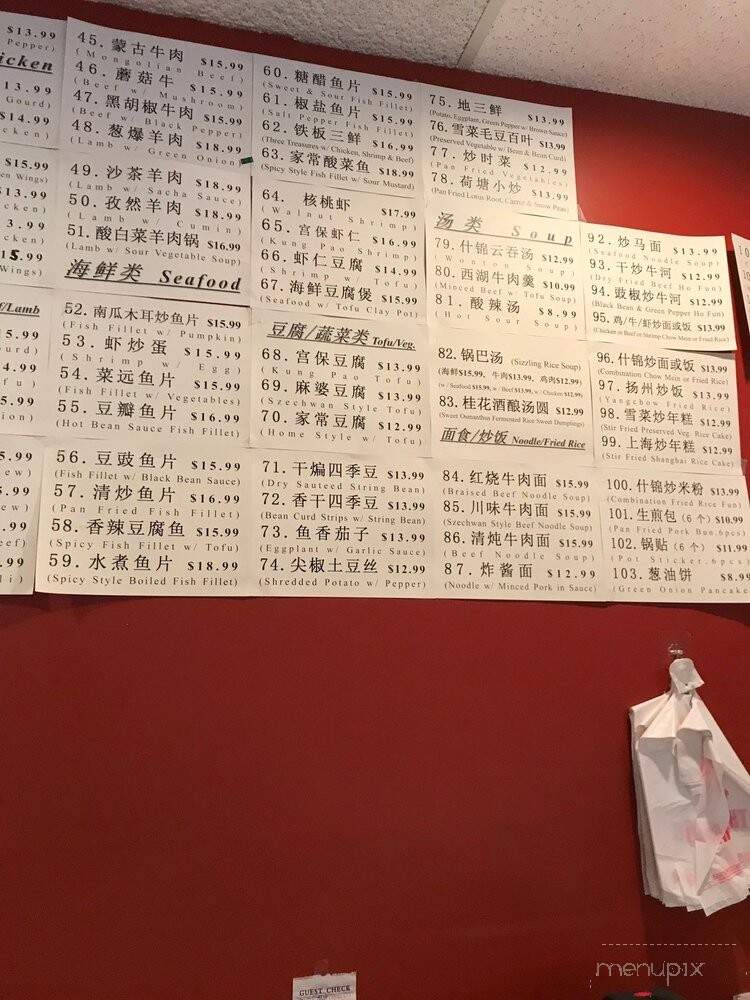 $13.99
Pepper)
icken
13.99
Gourd)
$14.99
cken)
$15.99
en Wings)
$13.99
cken)
3.99
cken)
15.99
Wings)
f/Lamb
15.99
ourd)
$14.99
ofu)
15.99
nion)
5.99
ew)
5.99
ew)
.99
eef)
.99
li)
45. 蒙古牛肉 $15.99
(Mongolian Beef)
46. 蘑菇牛 $15.99
(Beef w/ Mushroom)
47. 黑胡椒牛肉 $15.99
(Beef w/ Black Pepper)
48. 葱爆羊肉 $18.99
(Lamb w/ Green Onion)
49. 沙茶羊肉 $18.99
(Lamb w/ Sacha Sauce)
50. 孜然羊肉 $18.99
(Lamb w/ Cumin)
51. 酸白菜羊肉锅 $16.99
(Lamb w/ Sour Vegetable Soup)
海鲜类 Seafood
52. 南瓜木耳炒鱼片 $15.99
(Fish Fillet w/ Pumpkin)
53. 虾炒蛋 $15.99
(Shrimp w/ Egg)
54. 菜远鱼片 $15.99
(Fish Fillet w/ Vegetables)
55. 豆瓣鱼片 $16.99
(Hot Bean Sauce Fish Fillet)
56. 豆豉鱼片 $15.99
(Fish Fillet w/ Black Bean Sauce)
57. 清炒鱼片 $16.99
(Pan Fried Fish Fillet)
58. 香辣豆腐鱼 $15.99
(Spicy Fish Fillet w/ Tofu)
59. 水煮鱼片 $18.99
(Spicy Style Boiled Fish Fillet)
60. 糖醋鱼片 $15.99
(Sweet & Sour Fish Fillet)
61. 椒盐鱼片 $15.99
(Salt Pepper Fish Fillet)
62. 铁板三鲜 $16.99
(Three Treasures w/ Chicken, Shrimp & Beef)
63. 家常酸菜鱼 $18.99
(Spicy Style Fish Fillet w/ Sour Mustard)
64. 核桃虾 $17.99
(Walnut Shrimp)
65. 宫保虾仁 $16.99
(Kung Pao Shrimp)
66. 虾仁豆腐 $14.99
(Shrimp w/ Tofu)
67. 海鲜豆腐煲 $15.99
(Seafood w/ Tofu Clay Pot)
豆腐/蔬菜类 Tofu/Veg.
68. 宫保豆腐 $13.99
(Kung Pao Tofu)
69. 麻婆豆腐 $13.99
(Szechwan Style Tofu)
70. 家常豆腐 $12.99
(Home Style w/ Tofu)
71. 干煸四季豆 $13.99
(Dry Sauteed String Bean)
72. 香干四季豆 $13.99
(Bean Curd Strips w/ String Bean)
73. 鱼香茄子 $13.99
(Eggplant w/ Garlic Sauce)
74. 尖椒土豆丝 $12.99
(Shredded Potato w/ Pepper)
75. 地三鲜 $13.99
(Potato, Eggplant, Green Pepper w/ Brown Sauce)
76. 雪菜毛豆百叶 $13.99
(Preserved Vegetable w/ Bean & Bean Curd)
77. 炒时菜 $12.99
(Pan Fried Vegetables)
78. 荷塘小炒 $13.99
(Pan Fried Lotus Root, Carrot & Snow Peas)
汤类 Soup
79. 什锦云吞汤 $12.99
(Wonton Soup)
80. 西湖牛肉羹 $10.99
(Minced Beef w/ Tofu Soup)
81. 酸辣汤 $8.99
(Hot Sour Soup)
82. 锅巴汤 (Sizzling Rice Soup)
(海鲜$15.99, 牛肉$13.99, 鸡肉$12.99)
(w/ Seafood $15.99, w/ Beef $13.99, w/ Chicken $12.99)
83. 桂花酒酿汤圆 $12.99
(Sweet Osmanthus Fermented Rice Sweet Dumplings)
面食/炒饭 Noodle/Fried Rice
84. 红烧牛肉面 $15.99
(Braised Beef Noodle Soup)
85. 川味牛肉面 $15.99
(Szechwan Style Beef Noodle Soup)
86. 清炖牛肉面 $15.99
(Beef Noodle Soup)
87. 炸酱面 $12.99
(Noodle w/ Minced Pork in Sauce)
92. 炒马面 $13.99
(Seafood Noodle Soup)
93. 干炒牛河 $12.99
(Dry Fried Beef Ho Fun)
94. 豉椒炒牛河 $12.99
(Black Bean & Green Pepper Ho Fun)
95. 鸡/牛/虾炒面或饭 $13.99
(Chicken or Beef or Shrimp Chow Mein or Fried Rice)
96. 什锦炒面或饭 $13.99
(Combination Chow Mein or Fried Rice)
97. 扬州炒饭 $13.99
(Yangchow Fried Rice)
98. 雪菜炒年糕 $12.99
(Stir Fried Preserved Veg. Rice Cake)
99. 上海炒年糕 $12.99
(Stir Fried Shanghai Rice Cake)
100. 什锦炒米粉 $13.99
(Combination Fried Rice Fun)
101. 生煎包 (6个) $10.99
(Pan Fried Pork Bun.6pcs)
102. 锅贴 (6个) $11.99
(Pot Sticker.6pcs)
103. 葱油饼 $8.99
(Green Onion Pancake
GUEST CHECK
menupix